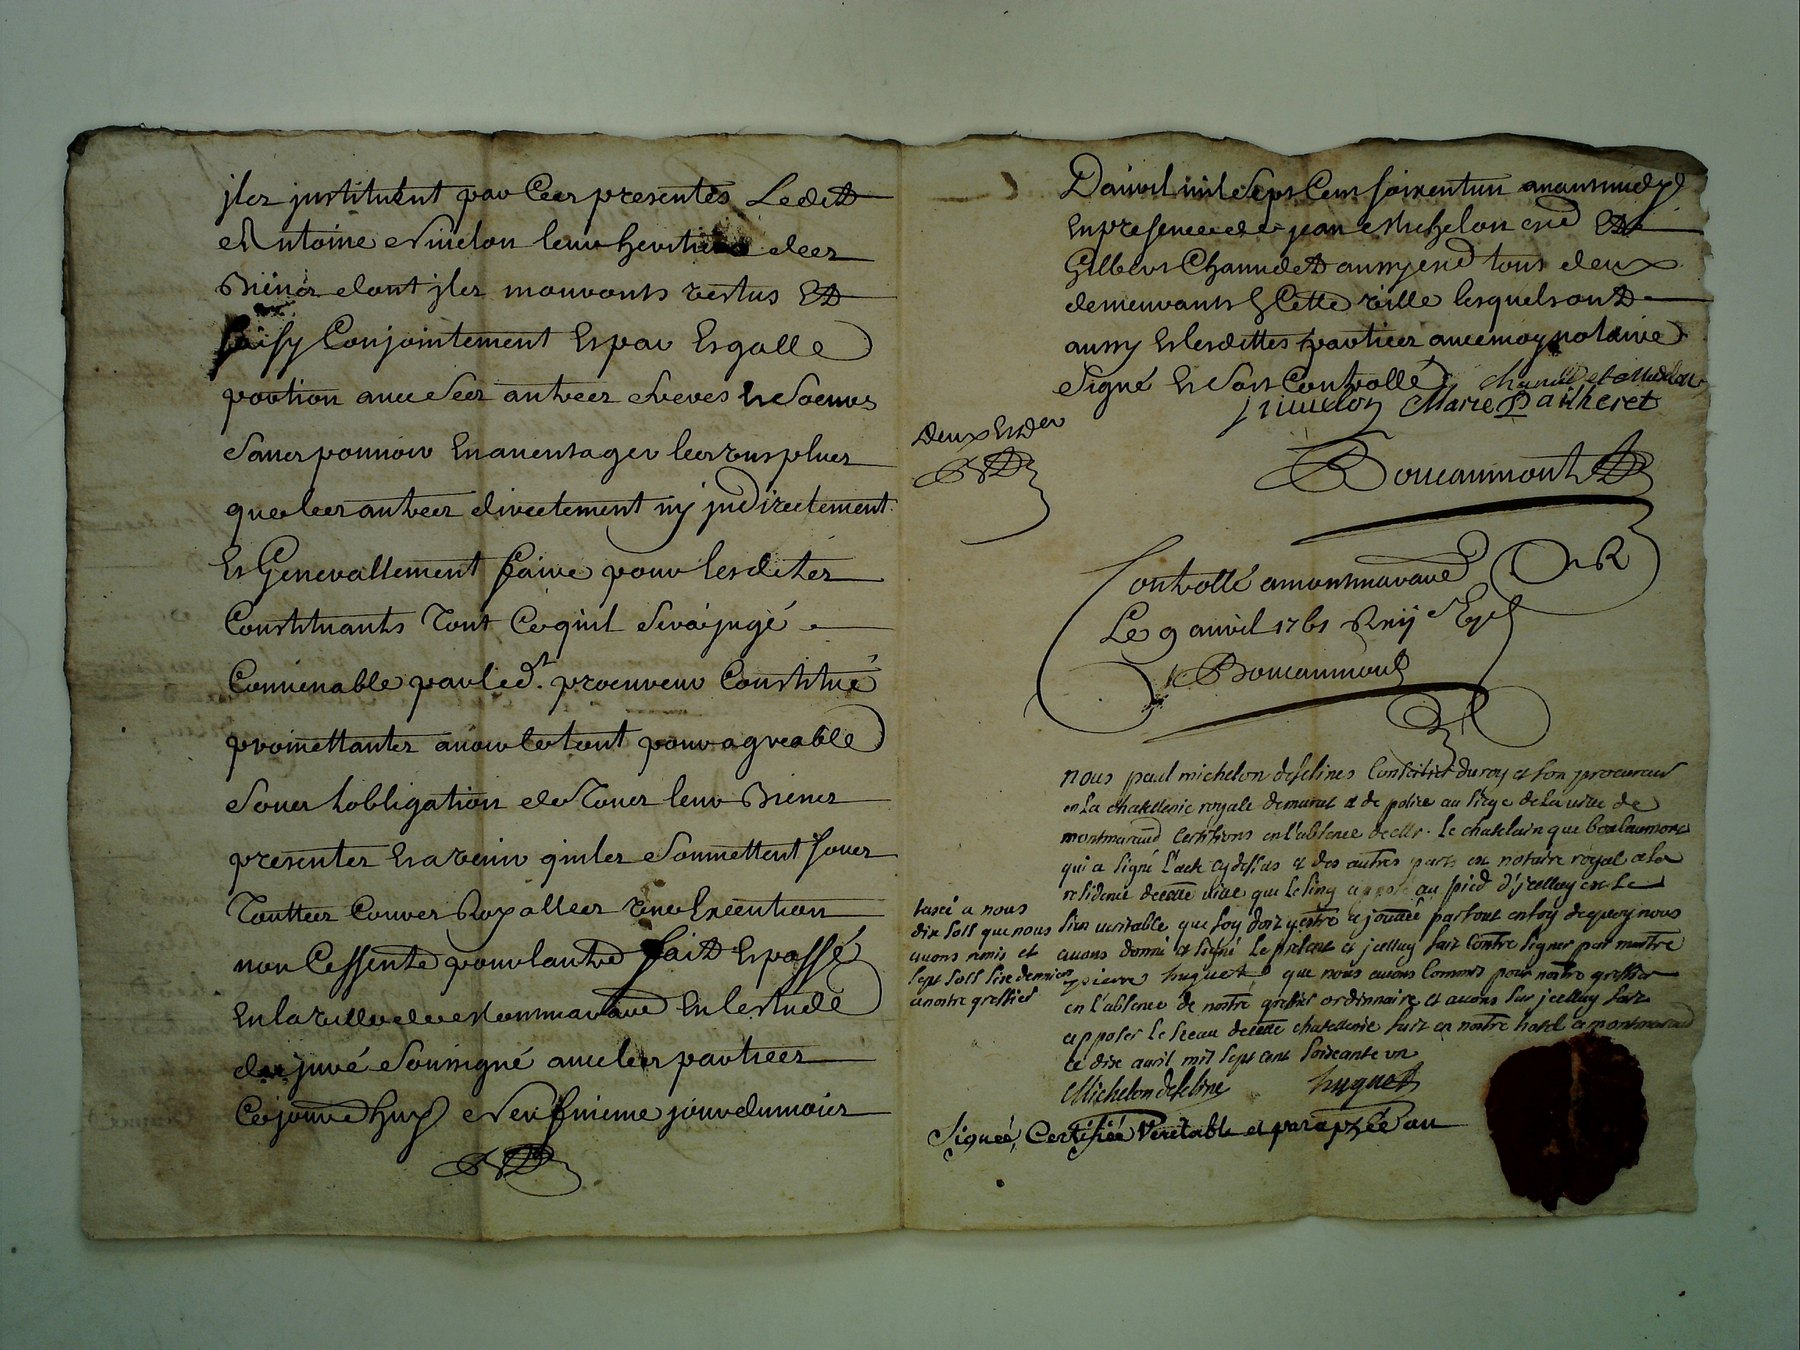 jlez justituent par Cees presentes Ledett
Antoine Vindon leur heritier deez
Bienez dont jlez mouronts vestus Ett
saisy Conjointement Es par Esgalle
portion avec Seez autreez freres Es Soeurs
Sanez pouvoir En aventager leez uns pluez
que leez autreez directement ny jndirectement
Es Generallement faire pour lesditez
Constituants Tout Ce quil Sera jugé
Convenable par led.t procureur Constitué
promettantez avoir le tout pour agreable
Souez Lobligation de Touez leur Bienez
presentez Es a venir quilez Soumettent souez
Toutteez Courez Royalleez rene Execution
non Cessente pour lautre fait Es passé
En la ville de Montmaraud En lestude
du juré Soussigné avec leez partieez
Ce jourdhuy Neufvieme jour du moiez
Davril mil Sept Cens soixentun avant midy
En presence de jean Michelon cnd Ett
Gilbert Chaumdett aussy cnd tous deux
demeurants En Cette ville lesquels ont
aussy Es lesdittes partieez avec moy notaire
Signé Es Soit Controllé
Marie Pailheret
Deux Es der
Boucaumont
Controllé a montmaraud
Le 9 avril 1761 Reçu
Boucaumont
nous paul michelon desclines Conseiller du roy et son procureur
en la chatellenie royale demurat et de police au siege de la ville de
montmaraud Certifions en l'absence de Mr. le chatelain que boucaumont
qui a signé l'acte cy dessus et des autres parts est notaire royal a la
residence decette ville que le sing apposé au pied d'jcelluy est le
sien veritable que foy doit y estre ajoutée partout en foy dequoy nous
avons donné et signé le present et jcelluy fait contre signer par maitre
pierre huguet que nous avons commis pour nostre greffier
en l'absence de nostre greffier ordinnaire et avons sur jcelluy fait
apposer le sceau decette chatellenie fait en nostre hotel a montmaraud
ce dix avril mil sept cent soixante un
taxé a nous
dix sols que nous
avons remis et
sept sols six deniers
a notre greffier
Michelon desclines huguet
Signée, Certifiée Veritable et paraphée au